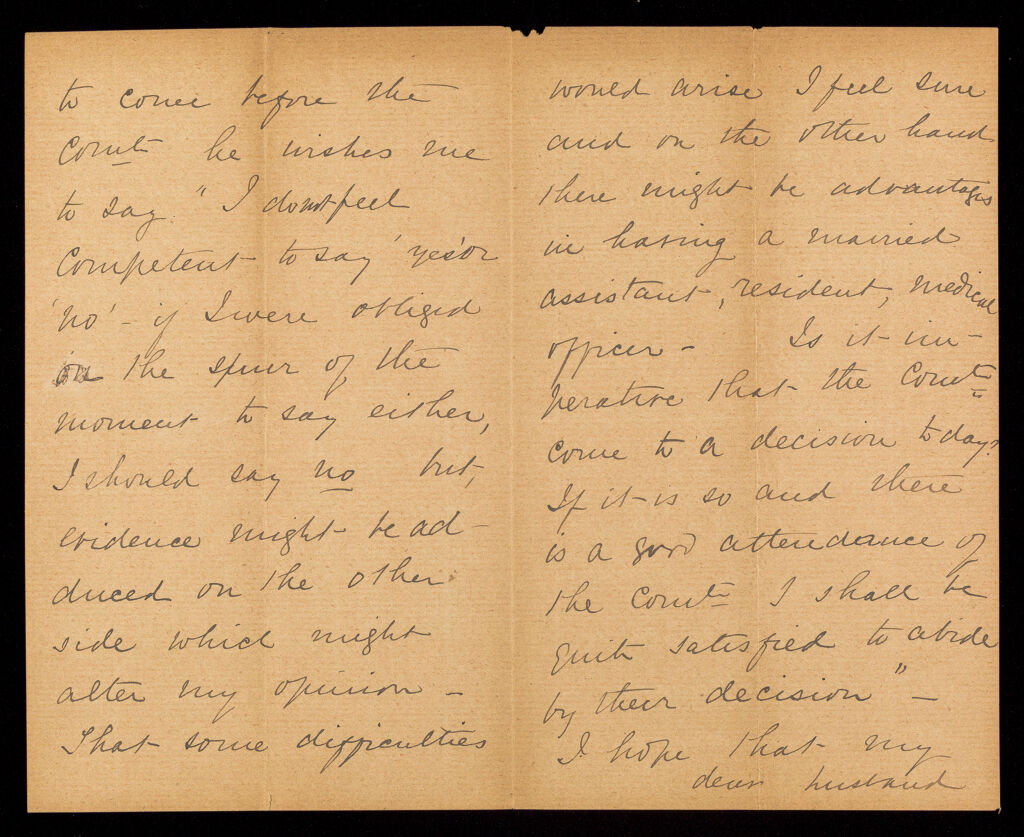 to come before the
Comte he wishes me
to say "I do not feel
Competent to say 'yes' or
'no' - if I were obliged
on the spur of the
moment to say either,
I should say no but,
evidence might be ad-
duced on the other
side which might
alter my opinion -
That some difficulties
would arise I feel sure
and on the other hand
there might be advantages
in having a married
assistant, resident, medical
officer - Is it im-
perative that the Comte
come to a decision today?
If it is so and there
is a good attendance of
the Comte I shall be
quite satisfied to abide
by their decision" -
I hope that my
dear husband